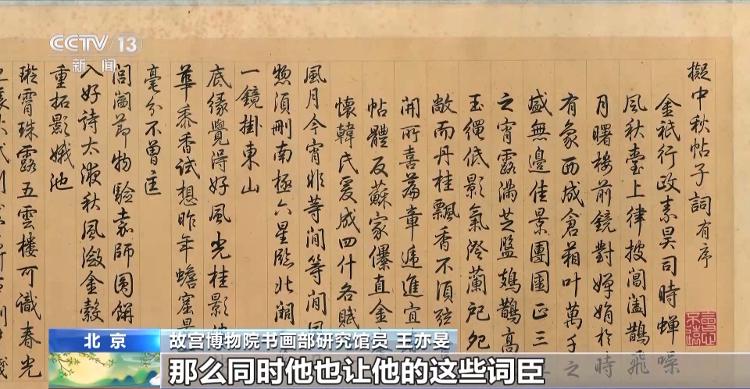 CCTV 13
新闻
擬中秋帖子詞有序
金祇行政素昊司時蟬噪
風秋臺上律披閶闔鵲飛
月曙樓前鏡對嬋娟於時
有象而成倉箱叶萬
盛無邊佳景團圞正三
之宵露滿芝盤鳷鵲高
玉繩低影氣澄蘭戺
敞而丹桂飄香不須
開所喜篇章遞進宜
帖體及蘇家儤直金
懷韓氏爰成四什各賦
風月今宵非等閒等閒
須刪南極六星臨北闕
一鏡掛東山
底緣覺得好風光桂影
華黍香試想昨年蟾窟
毫分不曾
閶闔節物驗嘉師圓餅
入好詩太液秋風瀲金縠
重拓影娥池
璇霄珠露五雲樓可識春光
北京
故宫博物院书画部研究馆员 王亦旻
那么同时他也让他的这些词臣